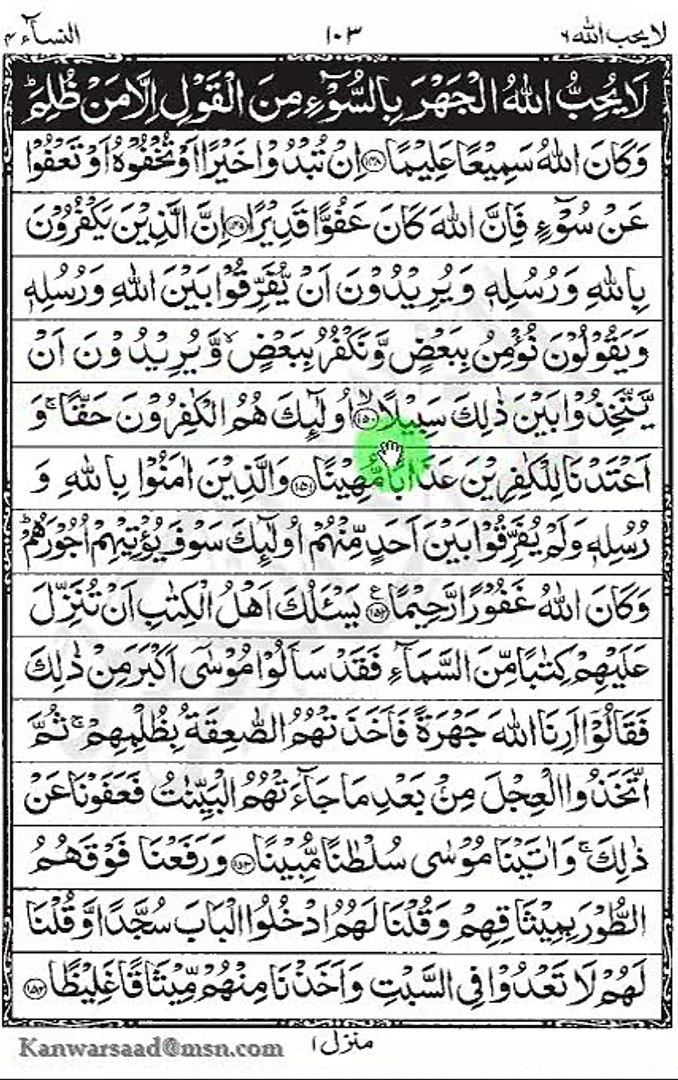 لا يحب الله ٦ ١٠٣ النساء ٤
لَا يُحِبُّ اللّٰهُ الْجَهْرَ بِالسُّوْٓءِ مِنَ الْقَوْلِ اِلَّا مَنْ ظُلِمَ ؕ
وَكَانَ اللّٰهُ سَمِيْعًا عَلِيْمًا ﴿۱۴۸﴾ اِنْ تُبْدُوْا خَيْرًا اَوْ تُخْفُوْهُ اَوْ تَعْفُوْا
عَنْ سُوْٓءٍ فَاِنَّ اللّٰهَ كَانَ عَفُوًّا قَدِيْرًا ﴿۱۴۹﴾ اِنَّ الَّذِيْنَ يَكْفُرُوْنَ
بِاللّٰهِ وَرُسُلِهٖ وَيُرِيْدُوْنَ اَنْ يُّفَرِّقُوْا بَيْنَ اللّٰهِ وَرُسُلِهٖ
وَيَقُوْلُوْنَ نُؤْمِنُ بِبَعْضٍ وَّنَكْفُرُ بِبَعْضٍ ۙ وَّيُرِيْدُوْنَ اَنْ
يَّتَّخِذُوْا بَيْنَ ذٰلِكَ سَبِيْلًا ۙ﴿۱۵۰﴾ اُولٰٓئِكَ هُمُ الْكٰفِرُوْنَ حَقًّا ۚ وَ
اَعْتَدْنَا لِلْكٰفِرِيْنَ عَذَابًا مُّهِيْنًا ﴿۱۵۱﴾ وَالَّذِيْنَ اٰمَنُوْا بِاللّٰهِ وَ
رُسُلِهٖ وَلَمْ يُفَرِّقُوْا بَيْنَ اَحَدٍ مِّنْهُمْ اُولٰٓئِكَ سَوْفَ يُؤْتِيْهِمْ اُجُوْرَهُمْ ؕ
وَكَانَ اللّٰهُ غَفُوْرًا رَّحِيْمًا ﴿۱۵۲﴾ ع يَسْـَٔلُكَ اَهْلُ الْكِتٰبِ اَنْ تُنَزِّلَ
عَلَيْهِمْ كِتٰبًا مِّنَ السَّمَآءِ فَقَدْ سَاَلُوْا مُوْسٰٓى اَكْبَرَ مِنْ ذٰلِكَ
فَقَالُوْٓا اَرِنَا اللّٰهَ جَهْرَةً فَاَخَذَتْهُمُ الصّٰعِقَةُ بِظُلْمِهِمْ ۚ ثُمَّ
اتَّخَذُوا الْعِجْلَ مِنْۢ بَعْدِ مَا جَآءَتْهُمُ الْبَيِّنٰتُ فَعَفَوْنَا عَنْ
ذٰلِكَ ۚ وَاٰتَيْنَا مُوْسٰى سُلْطٰنًا مُّبِيْنًا ﴿۱۵۳﴾ وَرَفَعْنَا فَوْقَهُمُ
الطُّوْرَ بِمِيْثَاقِهِمْ وَقُلْنَا لَهُمُ ادْخُلُوا الْبَابَ سُجَّدًا وَّقُلْنَا
لَهُمْ لَا تَعْدُوْا فِى السَّبْتِ وَاَخَذْنَا مِنْهُمْ مِّيْثَاقًا غَلِيْظًا ﴿۱۵۴﴾
منزل ١
Kanwarsaad@msn.com